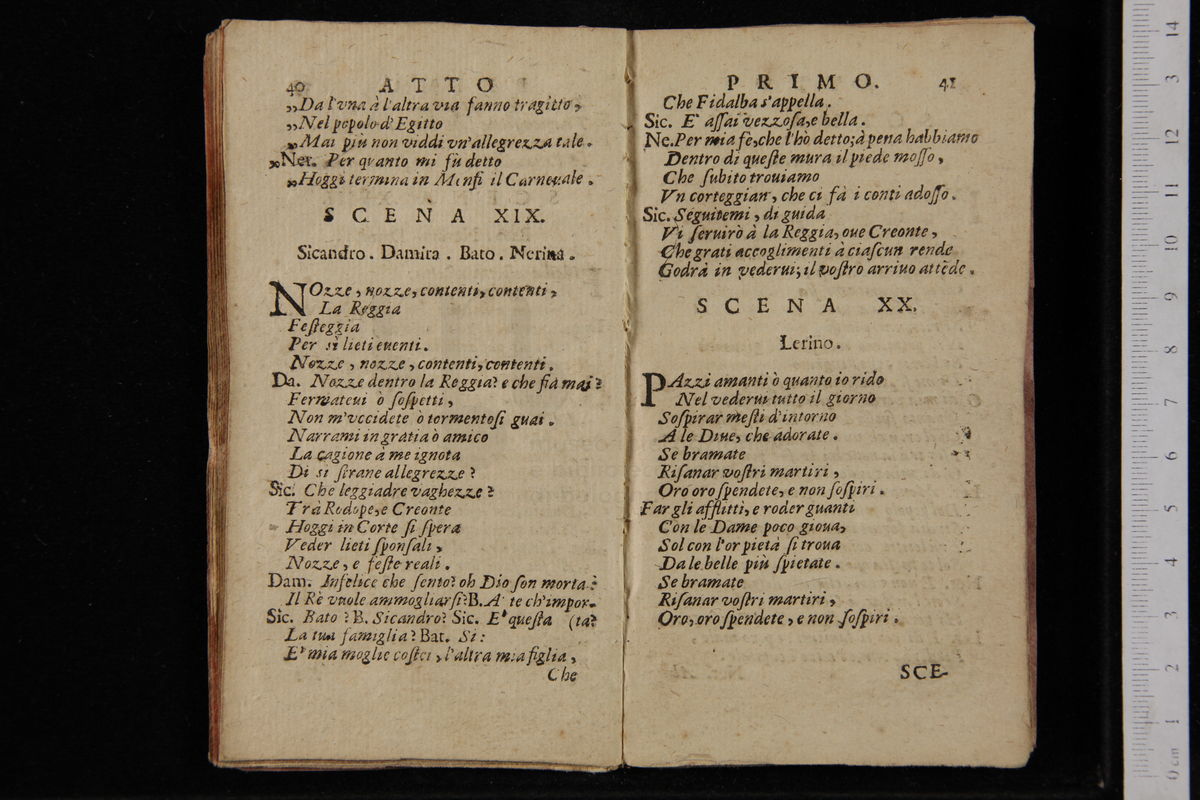 40 ATTO
„Da l'vna à l'altra via fanno tragitto,
„Nel popolo d'Egitto
„Mai più non viddi vn'allegrezza tale.
„Ner. Per quanto mi fù detto
„Hoggi termina in Menfi il Carneuale.
SCENA XIX.
Sicandro. Damira. Bato. Nerina.
NOzze, nozze, contenti, contenti,
La Reggia
Feſteggia
Per sì lieti euenti.
Nozze, nozze, contenti, contenti.
Da. Nozze dentro la Reggia? e che fia mai?
Fermateui ò ſoſpetti,
Non m'vccidete ò tormentoſi guai.
Narrami in gratia ò amico
La cagione à me ignota
Di sì ſtrane allegrezze?
Sic. Che leggiadre vaghezze?
Trà Rodope, e Creonte
Hoggi in Corte ſi ſpera
Veder lieti ſponſali,
Nozze, e feſte reali.
Dam. Infelice che ſento? oh Dio ſon morta:
Il Rè vuole ammogliarſi? B. A' te ch'impor-
Sic. Bato? B. Sicandro? Sic. E' queſta (ta?
La tua famiglia? Bat. Si:
E' mia moglie coſtei, l'altra mia figlia,
Che
PRIMO. 41
Che Fidalba s'appella.
Sic. E' aſſai vezzoſa, e bella.
Ne. Per mia fè, che l'hò detto; à pena habbiamo
Dentro di queſte mura il piede moſſo,
Che ſubito trouiamo
Vn corteggian, che ci fà i conti adoſſo.
Sic. Seguitemi, di guida
Vi ſeruirò à la Reggia, oue Creonte,
Che grati accoglimenti à ciaſcun rende
Godrà in vederui; il voſtro arriuo attẽde.
SCENA XX.
Lerino.
PAzzi amanti ò quanto io rido
Nel vederui tutto il giorno
Soſpirar meſti d'intorno
A le Diue, che adorate.
Se bramate
Riſanar voſtri martiri,
Oro oro ſpendete, e non ſoſpiri.
Far gli afflitti, e roder guanti
Con le Dame poco gioua,
Sol con l'or pietà ſi troua
Da le belle più ſpietate.
Se bramate
Riſanar voſtri martiri,
Oro, oro ſpendete, e non ſoſpiri.
SCE-
0 cm 1 2 3 4 5 6 7 8 9 10 11 12 13 14